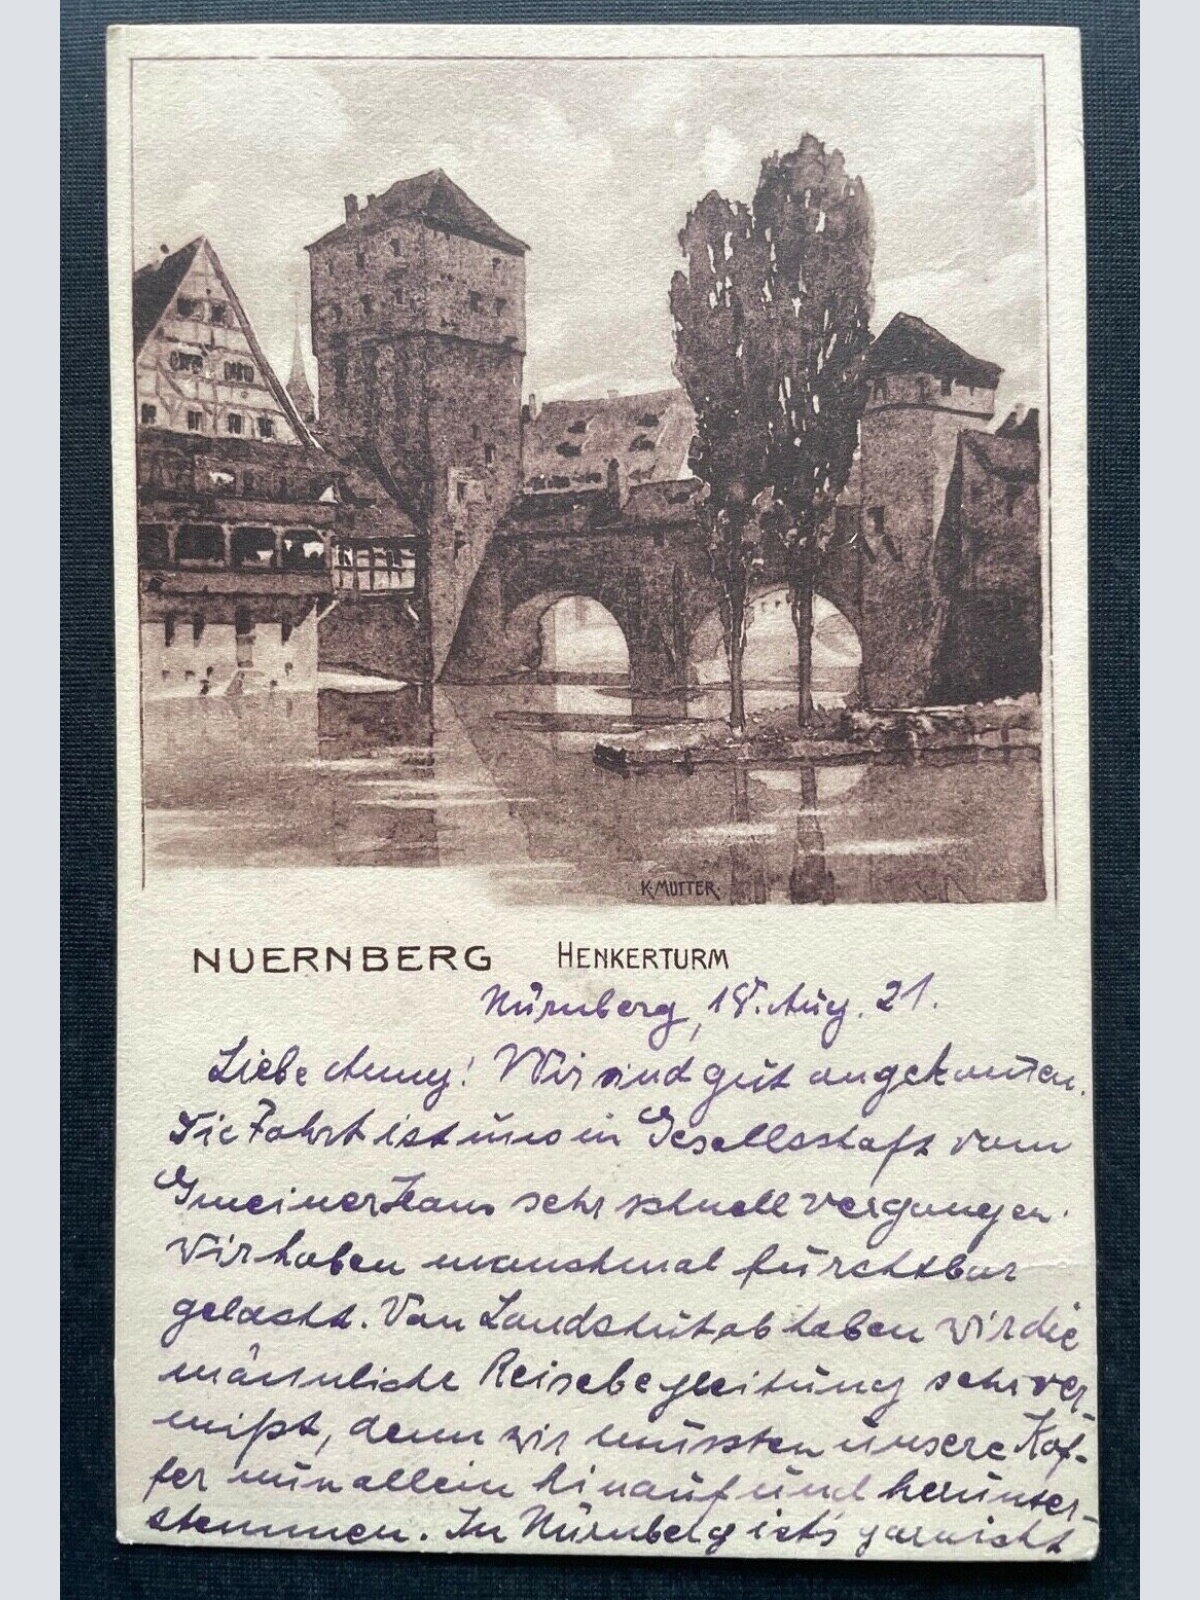 K. MUTTER.
NUERNBERG HENKERTURM
Nürnberg, 18. Aug. 21.
Liebe Anny! Wir sind gut angekom̅en.
Die Fahrt ist uns in Gesellschaft vom
sehr schnell vergangen.
Wir haben manchmal fürchtbar
gelacht. Von Landshut ab haben wir die
männliche Reisebegleitung sehr ver-
mißt, denn wir müssten unsere Kof-
fer nun allein hinauf und herunter-
stemmen. In Nürnberg ist's garnicht